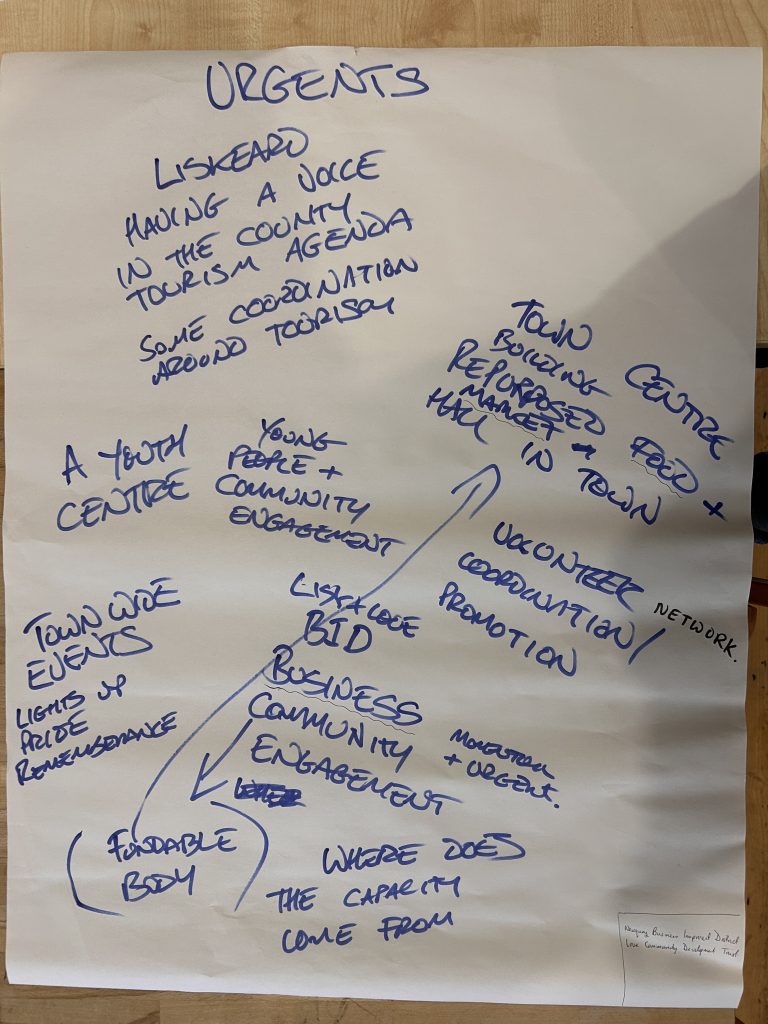 URGENTS
LISKEARD
HAVING A VOICE
IN THE COUNTY
TOURISM AGENDA
SOME COORDINATION
AROUND TOURISM
TOWN CENTRE
BUILDING
REPURPOSED FOOD +
MARKET
HALL IN TOWN
A YOUTH
CENTRE
YOUNG
PEOPLE +
COMMUNITY
ENGAGEMENT
VOLUNTEER
COORDINATION/
PROMOTION
NETWORK.
TOWN WIDE
EVENTS
LIGHTS UP
PRIDE
REMEMBERANCE
LISK + LOOE
BID
BUSINESS
COMMUNITY
ENGAGEMENT
MOMENTUM
+ URGENT.
(FUNDABLE
BODY)
WHERE DOES
THE CAPACITY
COME FROM
Newquay Business Improved District
Looe Community Development Trust